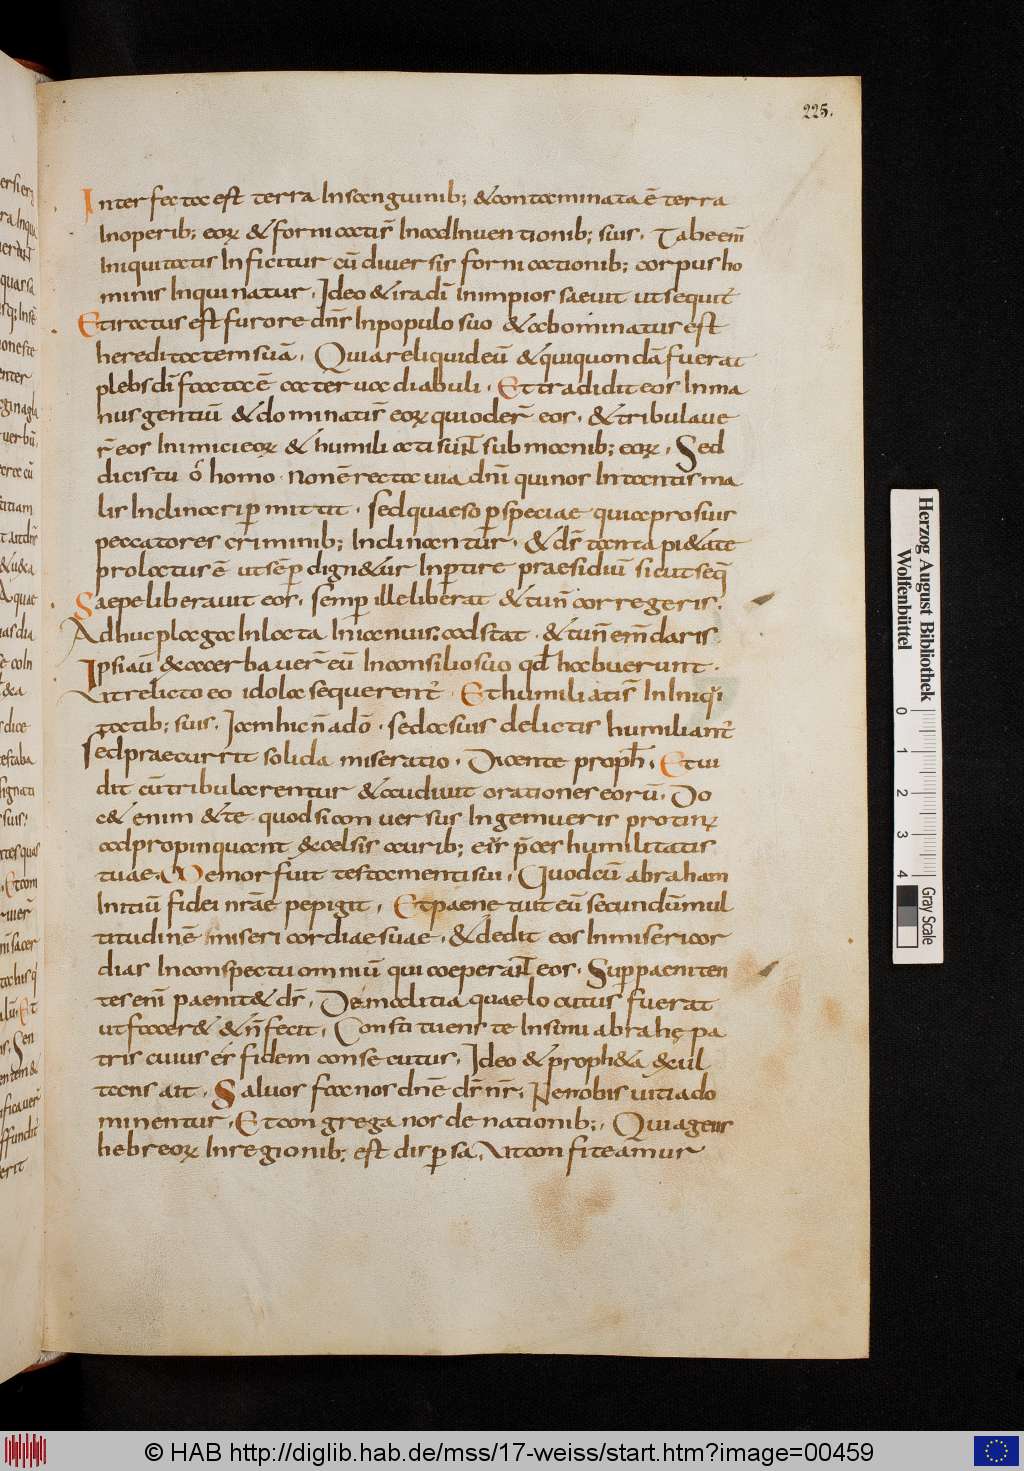 225.
Interfecta est terra In sanguinib; & contaminata ē terra
In operib; eoꝝ & fornicatis̄ In adInuentionib; suis. Tabe enī
Iniquitatis Inficitur cū diuersis fornicationib; corpus ho
minis Inquinatur. Ideo & ira dī In impios saeuit ut sequit̄
Et iratus est furore dn̄s In populo suo & abominatus est
hereditatem suā. Quia reliqui deū & qui quondā fuerat
plebs dī facta ē caterua diabuli. Et tradidit eos In ma
nus gentiū & dominatis̄ eoꝝ qui oder̄ eos. & tribulaue
r̄ eos Inimici eoꝝ & humiliati sunt sub manib; eoꝝ. Sed
dicis tu ó homo. non ē recta uia dn̄i qui nos In tantis ma
lis Inclinari ꝑmittit. sed quaeso ꝑspeciae quia pro suis
peccatores criminib; Inclinantur. & ds̄ tanta pi&ate
prolatus ē ut sēꝑ dign&ur Inꝑtire praesidiū sicut seq̄
Saepe liberauit eos. semꝑ ille liberat & tu n̄ corregeris.
Adhuc plaga In lacta In ianuis adstat. & tu n̄ em̄daris.
Ipsi aū exacerbauer̄ eū In consilio suo qd̄ habuerunt.
Ut relicto eo idola sequerent̄. Et humiliatis̄ In Iniqui
tatib; suis. Iam hic n̄ a dō. sed a suis delictis humiliant̄
sed praecurrit solida miseratio. Dicente proph̄. Et ui
dit cū tribularentur & audiuit orationes eorū. Do
c& enim & te quod si conuersus Ingemueris protinꝰ
adpropinquant excelsis aurib; eius p̄ces humilitatis
tuae. Memor fuit testamenti sui. Quod cū abraham
Initiū fidei nr̄ae pepigit. Et paenetuit eū secundū mul
titudinē misericordiae suae. & dedit eos In misericor
dias In conspectu omniū qui coeperant eos. Sup paeniten
tes enī paenit& ds̄. De malitia quae locutus fuerat
ut facer& & n̄ fecit. Constituens te In sinu abrahę pa
tris cuius es fidem consecutus. Ideo & proph&a exul
tans ait. Saluos fac nos dn̄e ds̄ nr̄. Ne nobis uitia do
minentur. Et congrega nos de nationib;. Quia gens
hebreoꝝ In regionib; est disꝑsa. Ut confiteamur
Herzog August Bibliothek
Wolfenbüttel
0 1 2 3 4
Gray Scale
© HAB http://diglib.hab.de/mss/17-weiss/start.htm?image=00459